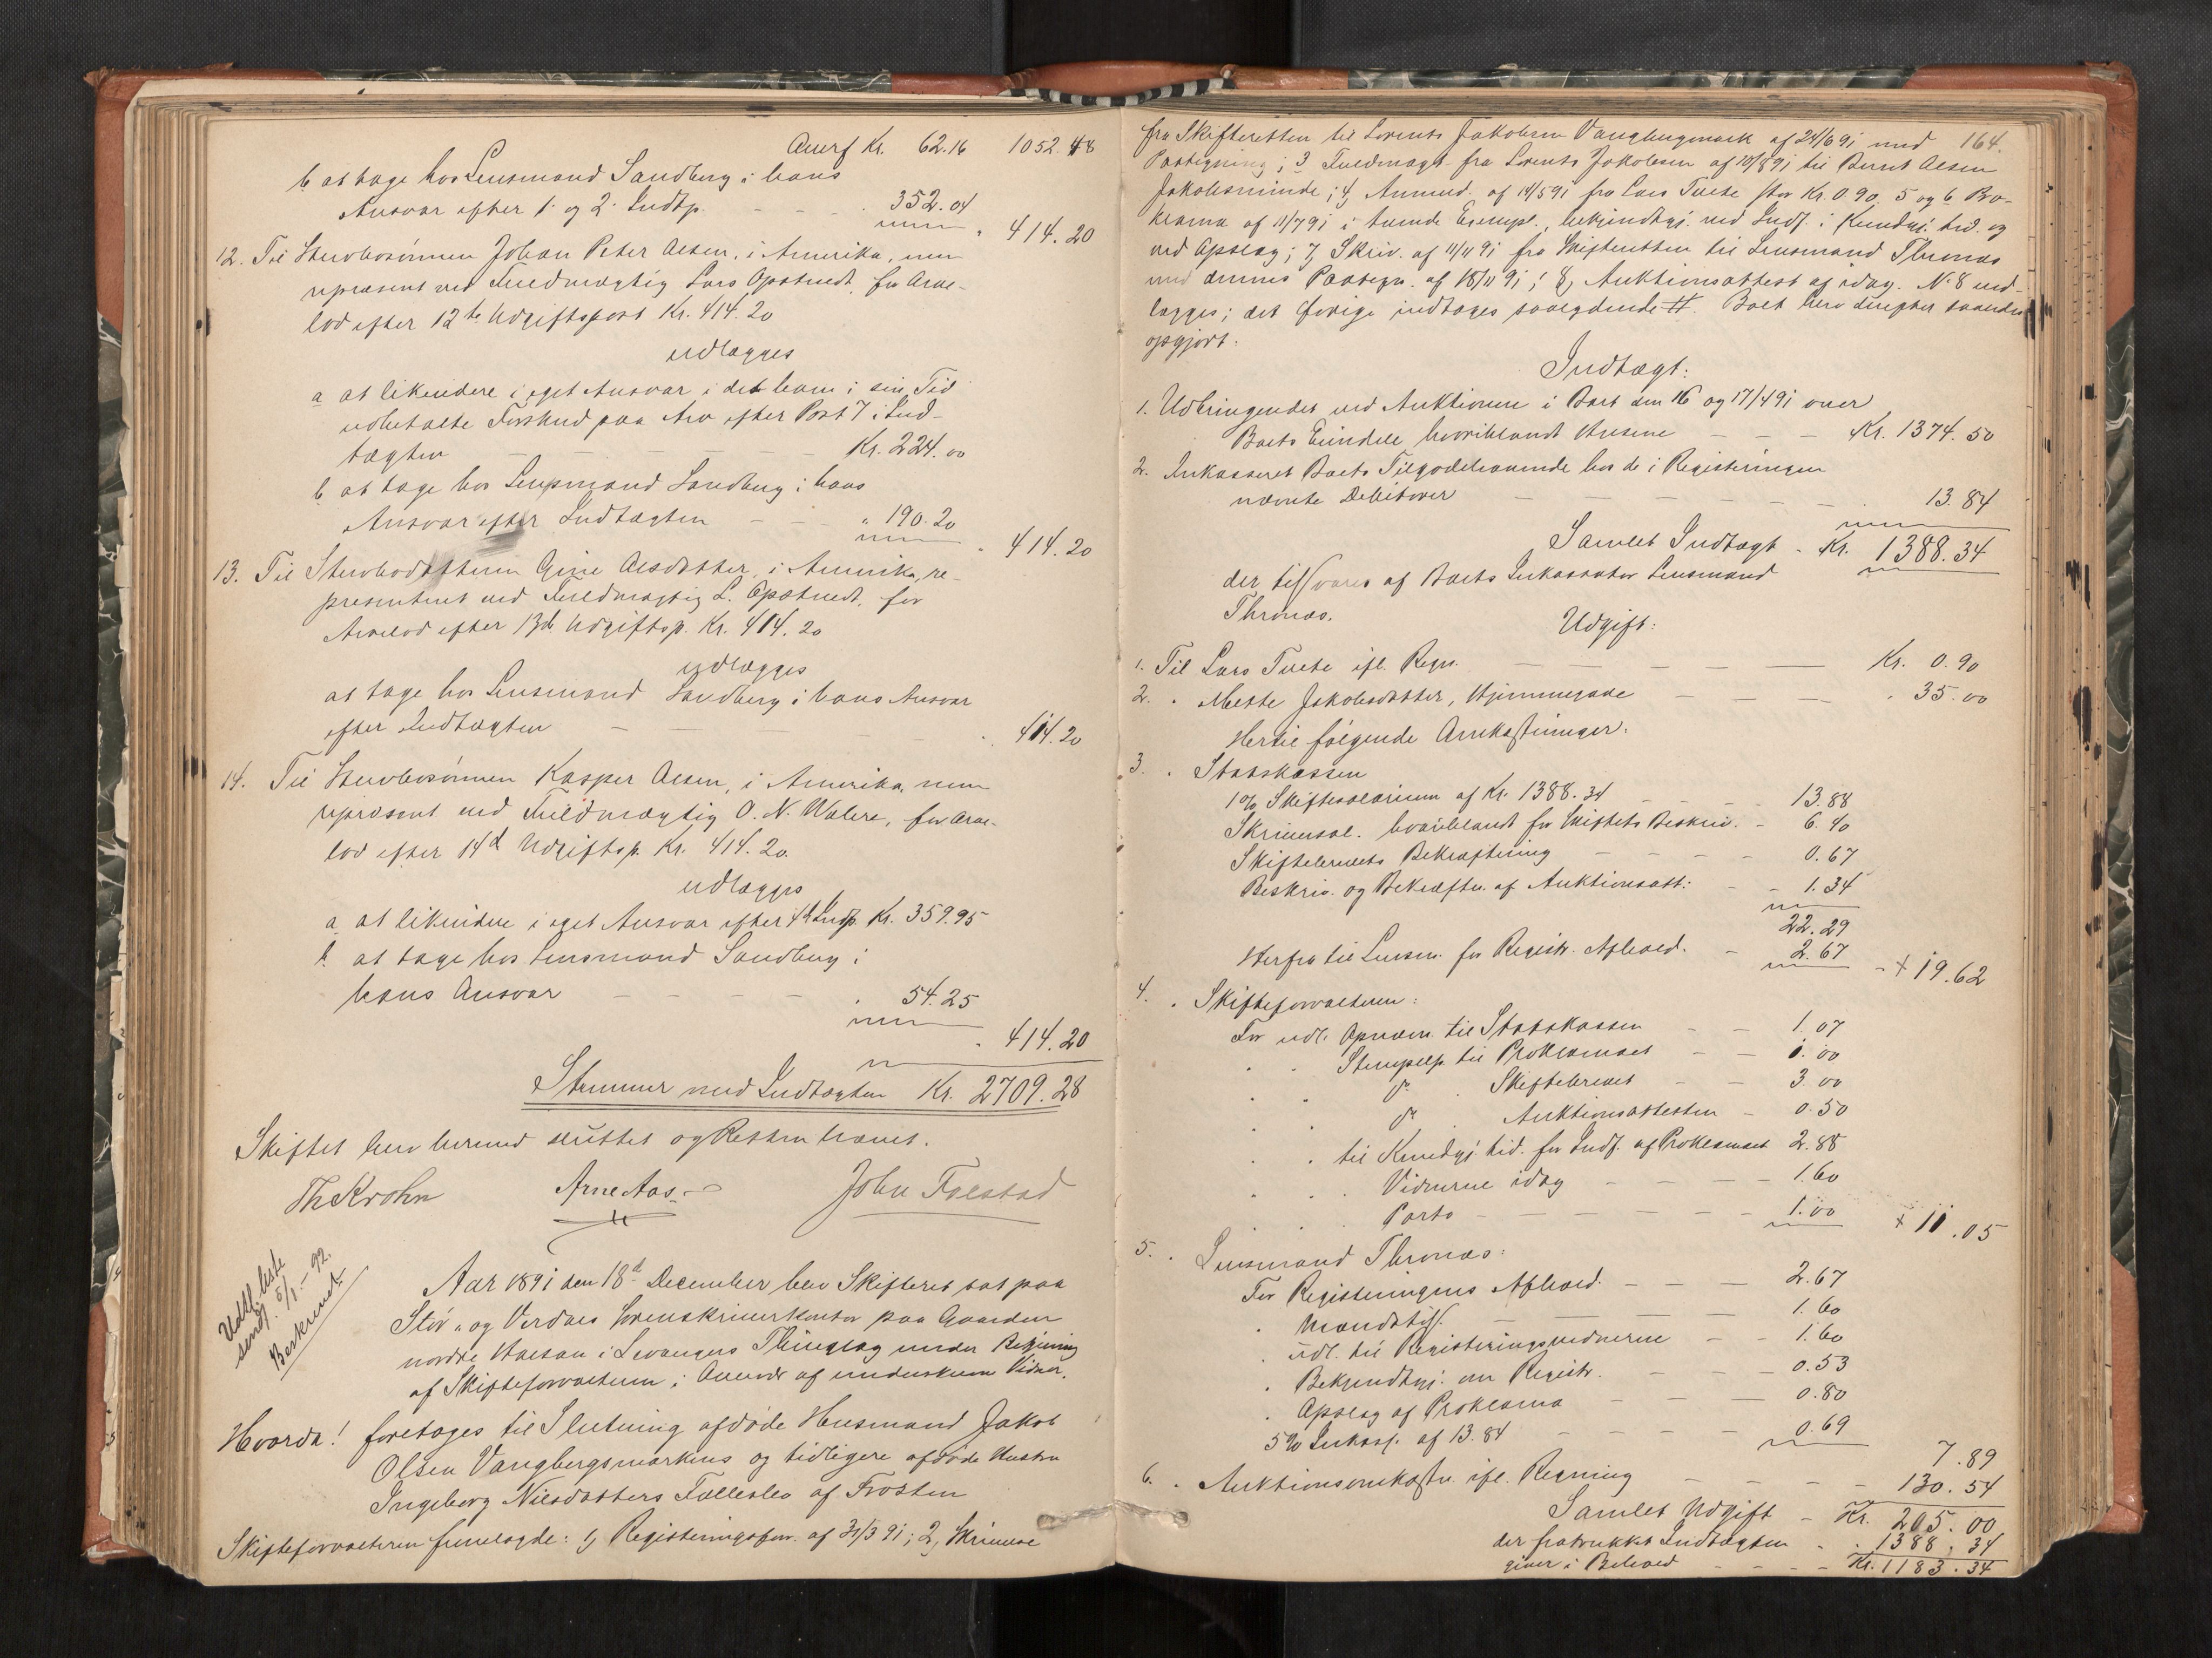 Overf Kr. 62.16 1052.48
b at tage hos Lensmand Sandberg i hans
Ansvar efter 1. og 2. Indtp. - - - 352.04
" 414.20
12. Til Stervbosønnen Johan Peter Olsen, i Amerika, nu
repræsent. ved Fuldmægtig Lars Opstvedt, for Arve-
lod efter 12te Udgiftspost Kr. 414.20
udlægges
a at likvidere i eget Ansvar i det ham i sin Tid
udbetalte Forskud paa Arv efter Post 7 i Ind-
tægten - - - - Kr. 224.00
b at tage hos Lensmand Sandberg i hans
Ansvar efter Indtægten - - " 190.20
" 414.20
13. Til Stervbodatteren Gine Olsdatter, i Amerika, re-
presenteret ved Fuldmægtig L. Opstvedt, for
Arvelod efter 13de Udgiftsp. Kr. 414.20
udlægges
at tage hos Lensmand Sandberg i hans Ansvar
efter Indtægten - - - - " 414.20
14. Til Stervbosønnen Kasper Olsen, i Amerika, nu
repræsent. ved Fuldmægtig O. N. Walere, for Arve-
lod efter 14d Udgiftsp. Kr. 414.20.
udlægges
a at likvidere i eget Ansvar efter 4d Indtp. Kr. 359.95
b. at tage hos Lensmand Sandberg i
hans Ansvar - - - - " 54.25
" 414.20
Stemmer med Indtægten Kr. 2709.28
Skiftet blev hermed sluttet og Retten hævet.
Th Krohn Arne Aas John Folstad
Udkl. liste
sendt 5/1-92.
Beskrevet
Aar 1891 den 18d December blev Skifteret sat paa
Stør- og Værdals Sorenskriverkontor paa Gaarden
nordre Halsan i Levangers Thinglag under Betjening
af Skifteforvalteren i Overvær af underskrevne Vidner.
Hvorda! foretages til Slutning afdøde Husmand Jakob
Olsen Vangbergsmarkens og tidligere afdøde Hustru
Ingeborg Nilsdatters Fællesbo af Frosten
Skifteforvalteren fremlagde: 1, Registeringsforr. af 31/3 91; 2, Skrivelse
164.
fra Skifteretten til Lorents Jakobsen Vangbergmark af 24/6 91 med
Paategning; 3 Fuldmagt fra Lorents Jakobsen af 10/8 91 til Bernt Olsen
Jakobsminde; 4, Anmeld. af 14/5 91 fra Lars Tuete stor Kr. 0.90, 5 og 6 Pro-
klama af 11/7 91 i tvende Exempl., bekjendtgj. ved Indf. i Kundgj. tid. og
ved Opslag; 7, Skriv. af 11/11 91 fra Skifteretten til Lensmand Thrones
med dennes Paategn. af 18/11 91; 8, Auktionsattest af idag. No 8 ved-
lægges; det øvrige indtages saalydende #. Boet blev derefter saaledes
opgjort:
Indtægt:
1. Udbringendet ved Auktionen i Boet den 16 og 17/4 91 over
Boets Eiendele hvoriblandt Husene - - - Kr. 1374.50
2. Inkasseret Boets Tilgodehavende hos de i Registeringen
nævnte Debitorer - - - - - " 13.84
Samlet Indtægt - Kr. 1388.34
der tilsvares af Boets Inkassator Lensmand
Thrones.
Udgift:
1. Til Lars Tuete ifl. Regn. - - - - Kr. 0.90
2. " Mette Jakobsdatter, Hjemmegave - - - " 35.00
Hertil følgende Omkostninger:
3. " Statskassen
1% Skiftesalarium af Kr. 1388.34 - - 13.88
Skriversal. hvoriblandt for Skiftets Beskriv. - 6.40
Skiftebrevets Bekræftning - - - 0.67
Beskriv. og Bekræftn. af Auktionsatt: - - 1.34
22.29
Herfra til Lensm. for Registr. Afhold. - 2.67 - + 19.62
4. " Skifteforvalteren:
For udl. Opnævn. til Statskassen - - 1.07
" " Stempelp. til Proklamaet - - 1.00
" " do " Skiftebrevet - - 3.00
" " do " Auktionsattesten - 0.50
" " til Kundgj. tid. for Indf. af Proklamaet 2.88
" " Vidnerne idag - - - 1.60
" " Porto - - - - - - 1.00 + 11.05
5. " Lensmand Thrones:
For Registeringens Afhold. - - - 2.67
" Mændstilf. - - - 1.60
" udl. til Registeringsvidnerne - - 1.60
" Bekjendtgj. om Registr. - - - 0.53
" Opslag af Proklama - - - 0.80
5% Inkass. af 13.84 - - - - 0.69
7.89
6. " Auktionsomkostn. ifl. Regning - - - - 130.54
Samlet Udgift - Kr. 205.00
der fratrukket Indtægten - " 1388.34
giver i Behold - - - - Kr. 1183.34